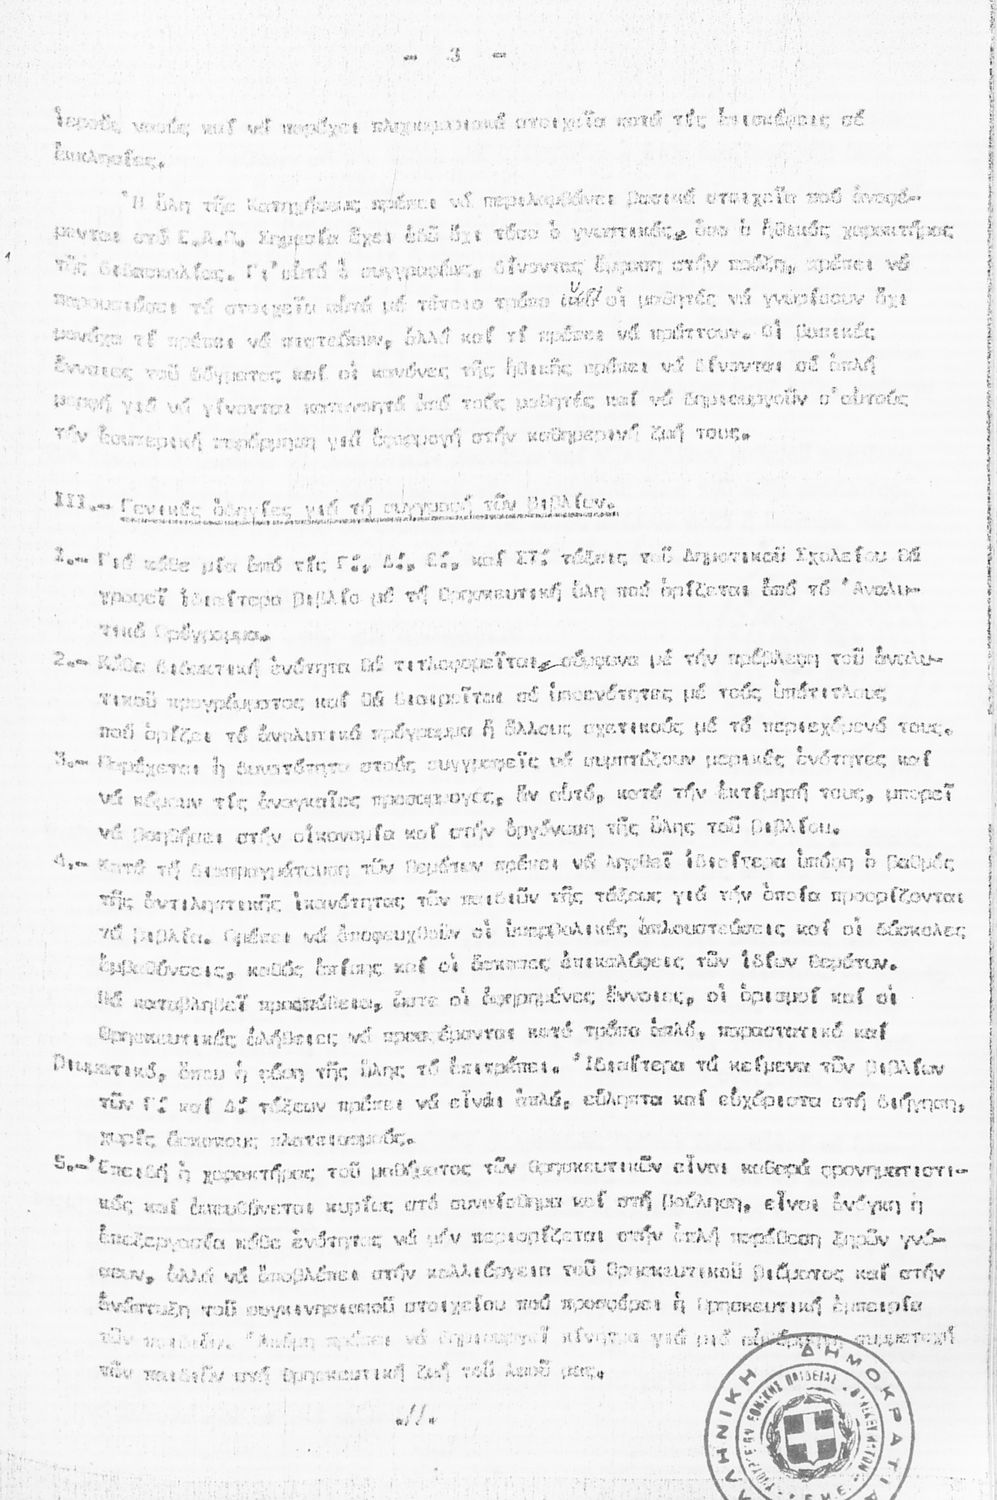 - 3 -
ἱερούς ναούς καί νά παρέχει πληροφοριακά στοιχεῖα κατά τίς ἐπισκέψεις σέ
ἐκκλησίες.
Ἡ ὕλη τῆς Κατηχήσεως πρέπει νά περιλαμβάνει βασικά στοιχεῖα πού ἀναφέ-
ρονται στό Σημασία ἔχει ἐδῶ ὄχι τόσο ὁ γνωστικός, ὅσο ὁ ἠθικός χαρακτήρας
τῆς διδασκαλίας. Γι'αὐτό ὁ συγγραφέας, δίνοντας ἔμφαση στήν πράξη, πρέπει νά
παρουσιάσει τά στοιχεῖα αὐτά μέ τέτοιο τρόπο οἱ μαθητές νά γνωρίσουν ὄχι
μονάχα τί πρέπει νά πιστεύουν, ἀλλά καί τί πρέπει νά πράττουν. Οἱ βασικές
ἔννοιες τοῦ δόγματος καί οἱ κανόνες τῆς ἠθικῆς πρέπει νά δίνονται σέ ἁπλή
μορφή γιά νά γίνονται κατανοητά ἀπό τούς μαθητές καί νά δημιουργοῦν σ'αὐτούς
τήν ἐσωτερική παρόρμηση γιά ἐφαρμογή στήν καθημερινή ζωή τους.
III.- Γενικές ὁδηγίες γιά τή συγγραφή τῶν βιβλίων.
1.- Γιά κάθε μία ἀπό τίς Γ', Δ', Ε', καί ΣΤ' τάξεις τοῦ Δημοτικοῦ Σχολείου θά
γραφεῖ ἰδιαίτερο βιβλίο μέ τή θρησκευτική ὕλη πού ὁρίζεται ἀπό τό Ἀναλυ-
τικό Πρόγραμμα.
2.- Κάθε διδακτική ἑνότητα θά τιτλοφορεῖται, σύμφωνα μέ τήν πρόβλεψη τοῦ ἀναλυ-
τικοῦ προγράμματος καί θά διαιρεῖται σέ ὑποενότητες μέ τούς ὑπότιτλους
πού ὁρίζει τό ἀναλυτικό πρόγραμμα ἤ ἄλλους σχετικούς μέ τό περιεχόμενό τους.
3.- Παρέχεται ἡ δυνατότητα στούς συγγραφεῖς νά συμπτύξουν μερικές ἑνότητες καί
νά κάμουν τίς ἀναγκαῖες προσαρμογές, ἄν αὐτό, κατά τήν ἐκτίμησή τους, μπορεῖ
νά βοηθήσει στήν οἰκονομία καί στήν ὀργάνωση τῆς ὕλης τοῦ βιβλίου.
4.- Κατά τή διαπραγμάτευση τῶν θεμάτων πρέπει νά ληφθεῖ ἰδιαίτερα ὑπόψη ὁ βαθμός
τῆς ἀντιληπτικῆς ἱκανότητας τῶν παιδιῶν τῆς τάξεως γιά τήν ὁποία προορίζονται
τά βιβλία. Πρέπει νά ἀποφευχθοῦν οἱ ὑπερβολικές ἁπλουστεύσεις καί οἱ δύσκολες
ἐμβαθύνσεις, καθώς ἐπίσης καί οἱ ἄσκοπες ἐπικαλύψεις τῶν ἰδίων θεμάτων.
Θά καταβληθεῖ προσπάθεια, ὥστε οἱ ἀφηρημένες ἔννοιες, οἱ ὁρισμοί καί οἱ
θρησκευτικές ἀλήθειες νά προσφέρονται κατά τρόπο ἁπλό, παραστατικό καί
βιωματικό, ὅπου ἡ φύση τῆς ὕλης τό ἐπιτρέπει. Ἰδιαίτερα τά κείμενα τῶν βιβλίων
τῶν Γ' καί Δ' τάξεων πρέπει νά εἶναι ἁπλά, εὔληπτα καί εὐχάριστα στή διήγηση,
χωρίς ἄσκοπους πλατειασμούς.
5.- Ἐπειδή ὁ χαρακτήρας τοῦ μαθήματος τῶν θρησκευτικῶν εἶναι καθαρά φρονηματιστι-
κός καί ἀπευθύνεται κυρίως στό συναίσθημα καί στή βούληση, εἶναι ἀνάγκη ἡ
ἐπεξεργασία κάθε ἑνότητας νά μήν περιορίζεται στήν ἁπλή παράθεση ξηρῶν γνώ-
σεων, ἀλλά νά ἀποβλέπει στήν καλλιέργεια τοῦ θρησκευτικοῦ βιώματος καί στήν
ἀνάπτυξη τοῦ συγκινησιακοῦ στοιχείου πού προσφέρει ἡ θρησκευτική ἐμπειρία
τῶν παιδιῶν. Ἀκόμη πρέπει νά δημιουργεῖ κίνητρα γιά μιά συμμετοχή
τῶν παιδιῶν στή θρησκευτική ζωή τοῦ λαοῦ μας.
.//.
ΕΛΛΗΝΙΚΗ ΔΗΜΟΚΡΑΤΙΑ
ΥΠΟΥΡΓΕΙΟΝ ΕΘΝΙΚΗΣ ΠΑΙΔΕΙΑΣ ΘΡΗΣΚΕΥΜΑΤΩΝ